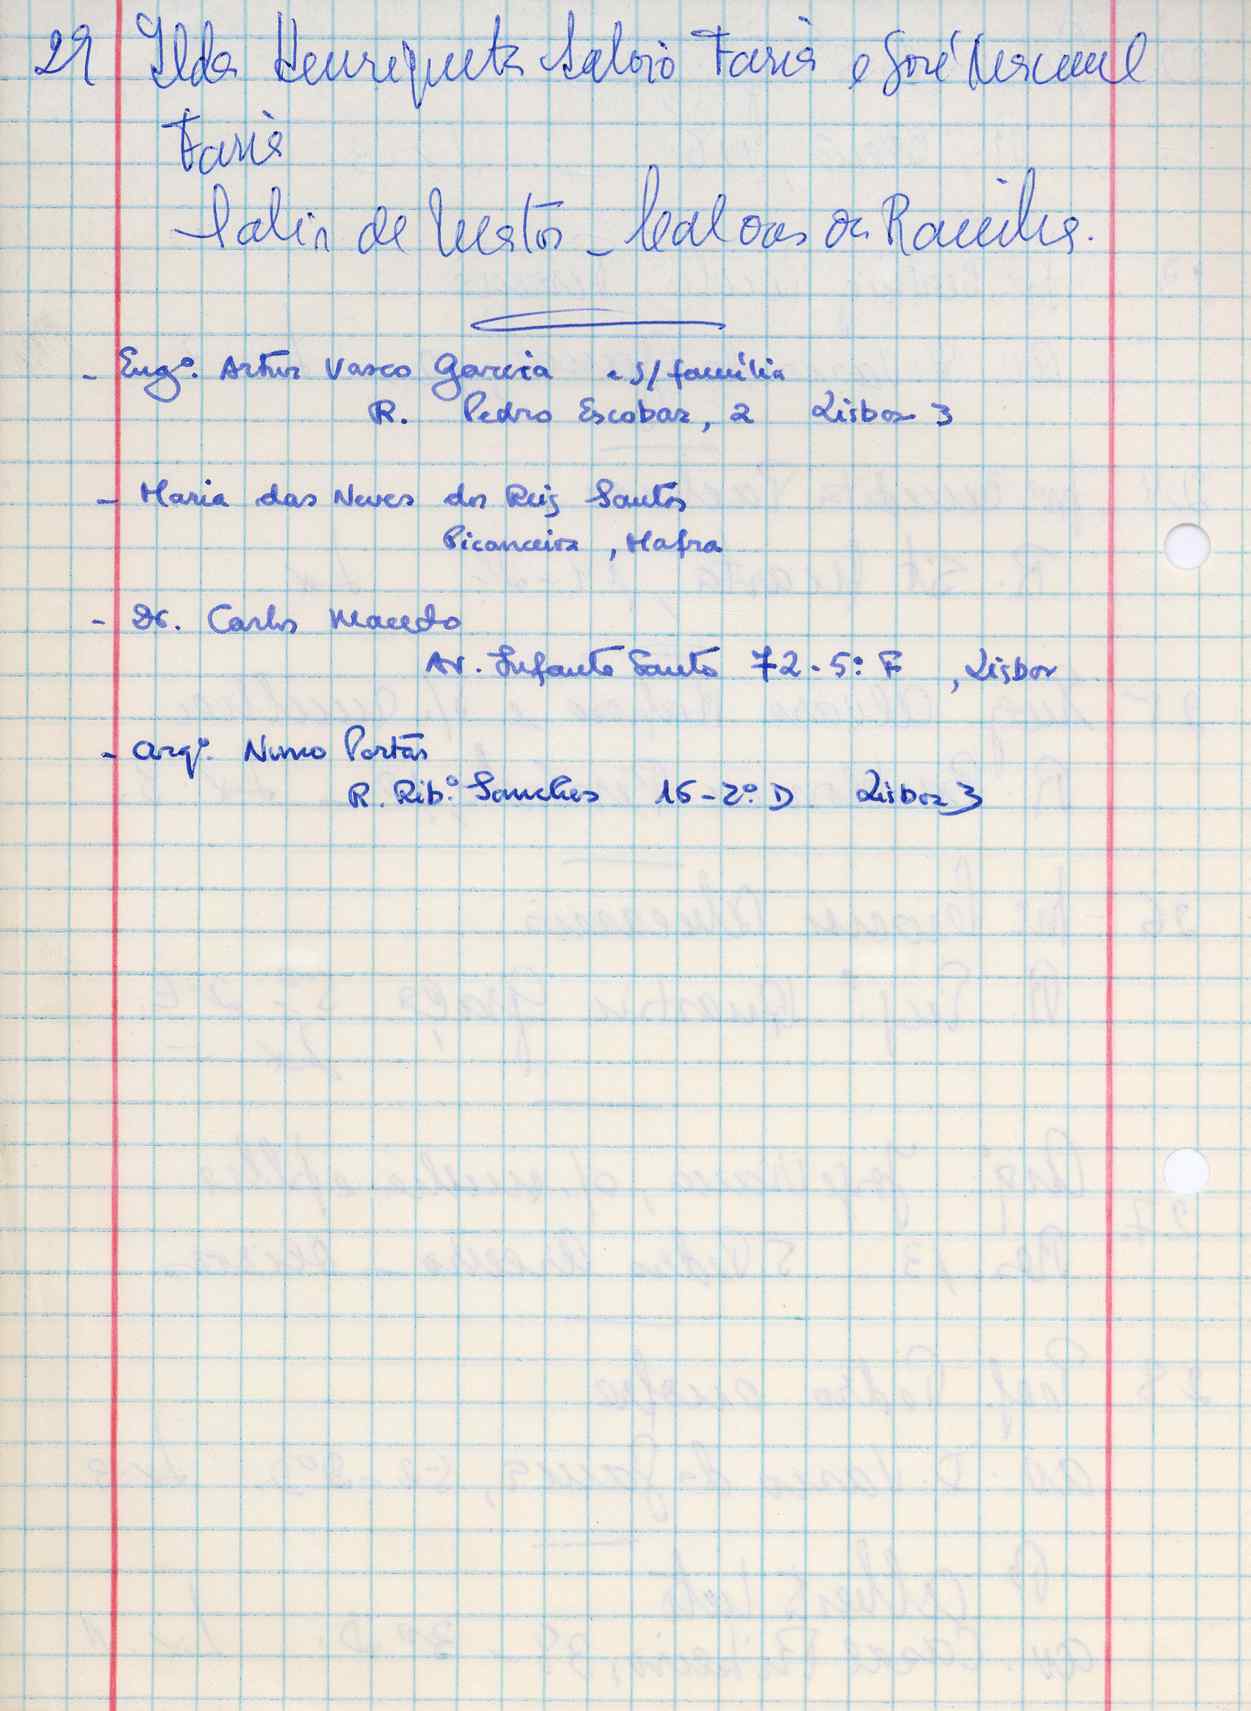 29 Ilda Henriqueta Saloio Faria e José Manuel
Faria
Salir de Matos _ Caldas da Rainha.
- Engº. Artur Vasco Garcia e s/ família
R. Pedro Escobar, 2 Lisboa 3
- Maria das Neves dos Reis Santos
Picanceira, Mafra
- Dr. Carlos Macedo
Av. Infante Santo 72-5º F, Lisboa
- Arqº. Nuno Portas
R. Ribº. Sanches 16-2º D Lisboa 3